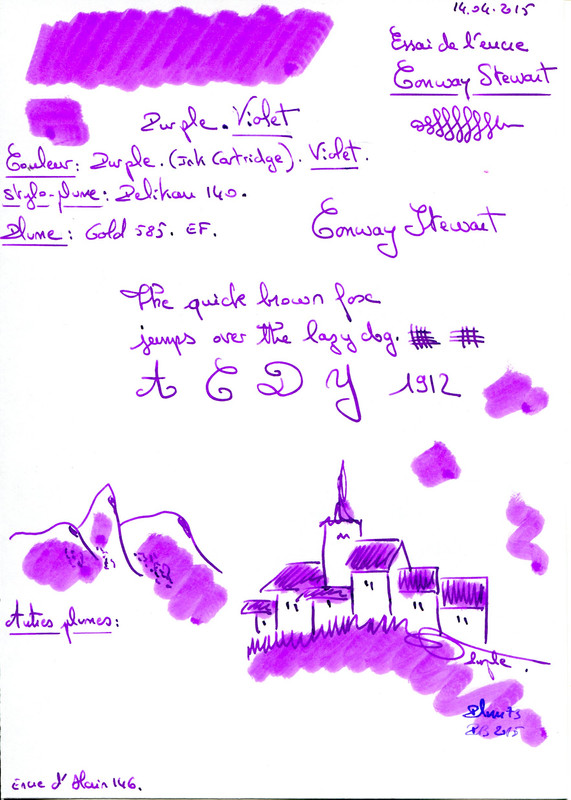 14.04.2015
Essai de l'encre
Conway Stewart
Purple. Violet
Couleur: Purple. (Ink Cartridge). Violet.
Stylo-plume: Pelikan 140.
Plume: Gold 585. EF.
Conway Stewart
The quick brown fox
jumps over the lazy dog.
A E D Y 1912
Autres plumes:
Purple.
2015
Encre d'Alain 146.